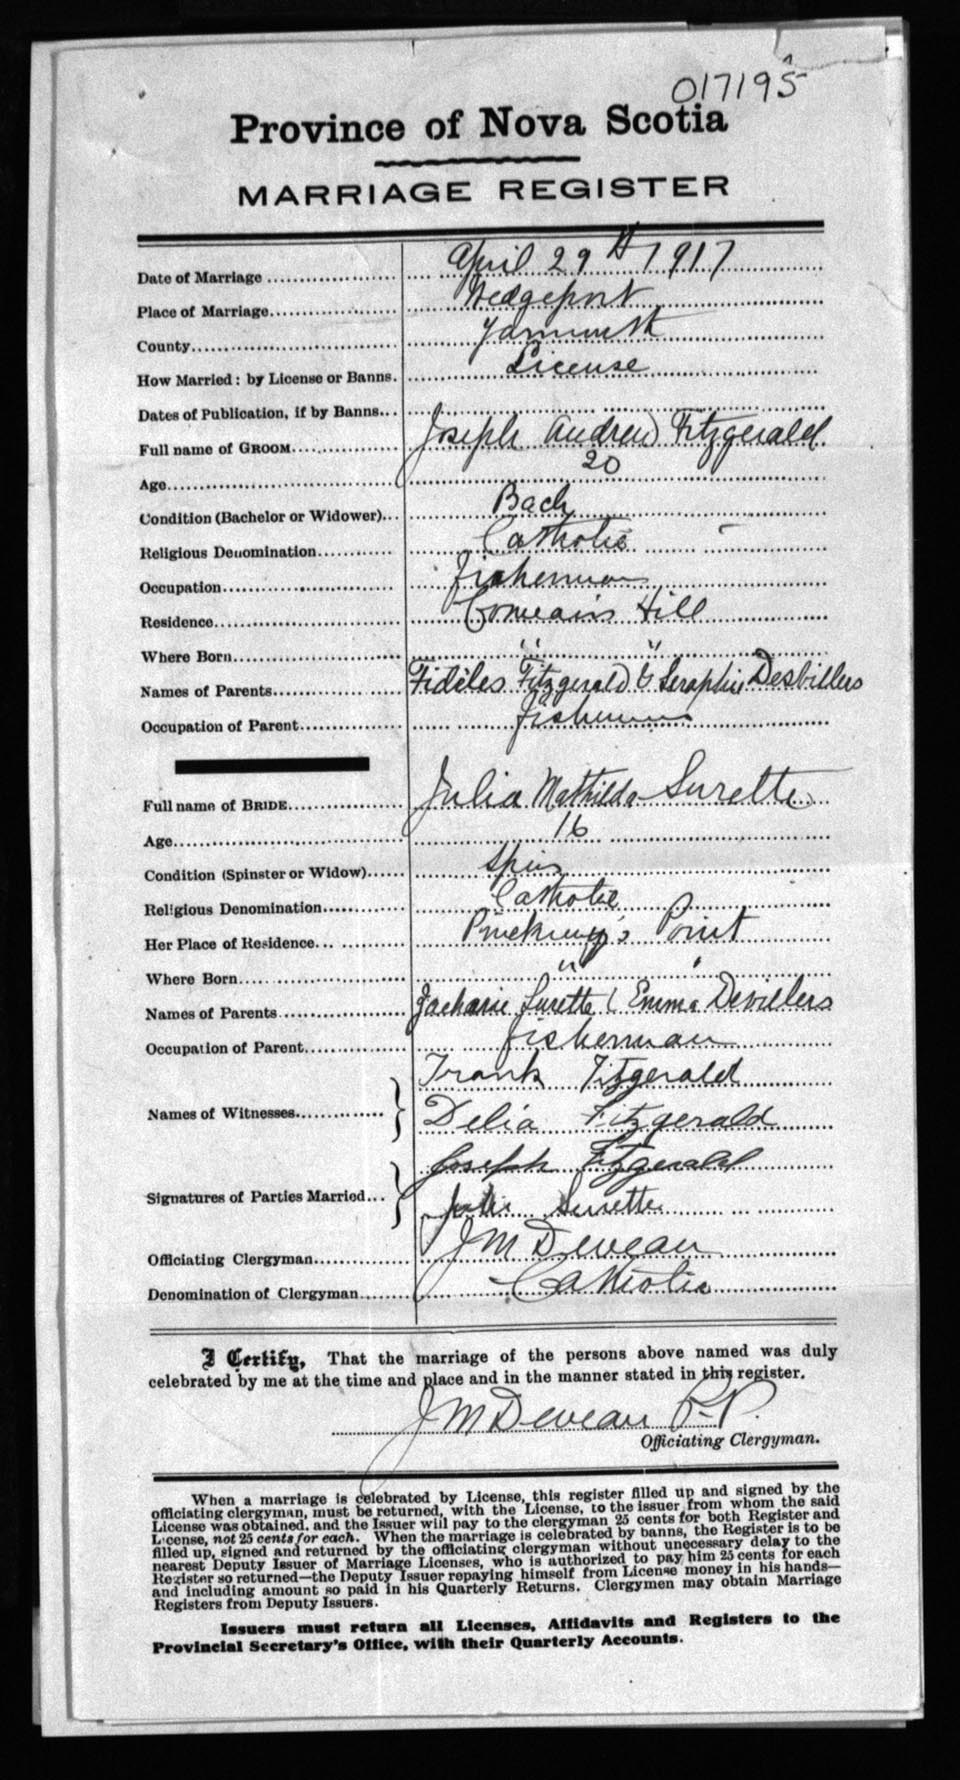 017195
Province of Nova Scotia
MARRIAGE REGISTER
Date of Marriage April 29th 1917
Place of Marriage Wedgeport
County Yarmouth
How Married: by License or Banns. License
Dates of Publication, if by Banns
Full name of GROOM Joseph Andrew Fitzgerald
Age 20
Condition (Bachelor or Widower) Bach
Religious Denomination Catholic
Occupation Fisherman
Residence Comeau's Hill
Where Born " "
Names of Parents Fidèles Fitzgerald & Seraphie Desvillers
Occupation of Parent Fisherman
Full name of BRIDE Julia Mathilda Surette
Age 16
Condition (Spinster or Widow) Spin
Religious Denomination Catholic
Her Place of Residence Pinckney's Point
Where Born "
Names of Parents Zacharie Surette & Emma Devillers
Occupation of Parent Fisherman
Names of Witnesses Frank Fitzgerald
Delia Fitzgerald
Signatures of Parties Married Joseph Fitzgerald
Surette
Officiating Clergyman J M Deveau
Denomination of Clergyman Catholic
I Certify, That the marriage of the persons above named was duly
celebrated by me at the time and place and in the manner stated in this register.
J M Deveau P.P.
Officiating Clergyman.
When a marriage is celebrated by License, this register filled up and signed by the
officiating clergyman, must be returned, with the License, to the issuer from whom the said
License was obtained, and the Issuer will pay to the clergyman 25 cents for both Register and
License, not 25 cents for each. When the marriage is celebrated by banns, the Register is to be
filled up, signed and returned by the officiating clergyman without unecessary delay to the
nearest Deputy Issuer of Marriage Licenses, who is authorized to pay him 25 cents for each
Register so returned—the Deputy Issuer repaying himself from License money in his hands—
and including amount so paid in his Quarterly Returns. Clergymen may obtain Marriage
Registers from Deputy Issuers.
Issuers must return all Licenses, Affidavits and Registers to the
Provincial Secretary's Office, with their Quarterly Accounts.